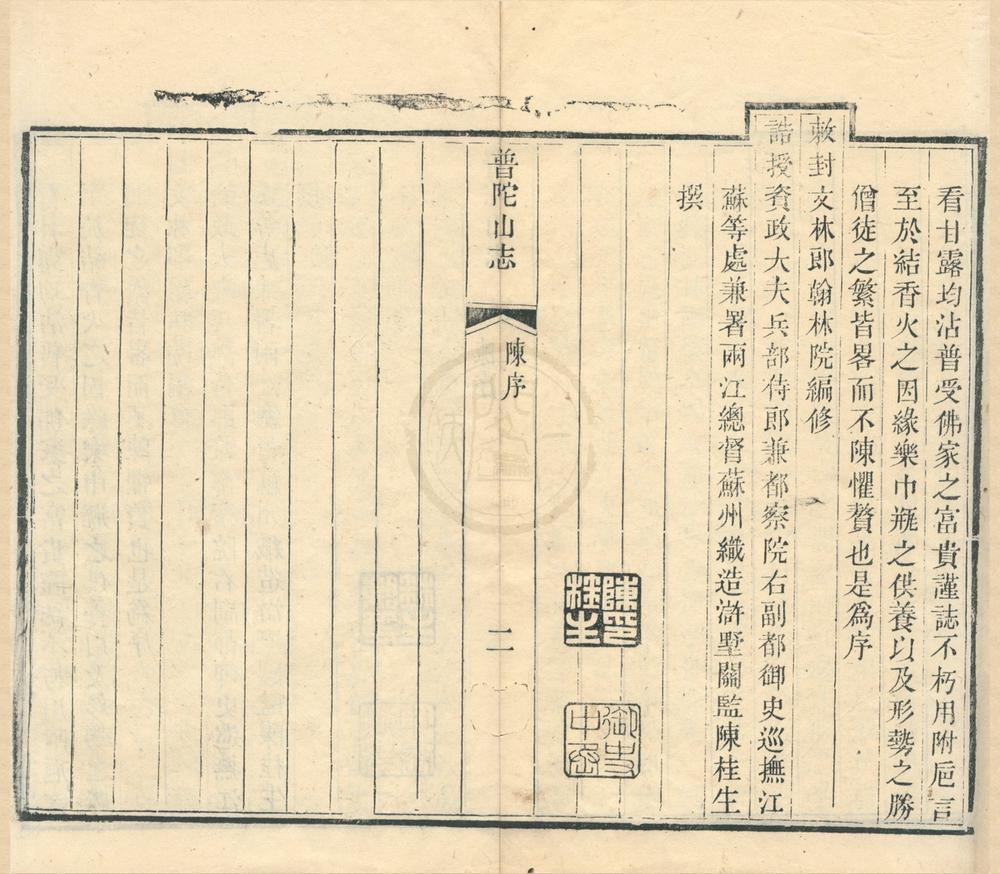 看甘露均沾普受佛家之富貴謹誌不朽用附巵言
至於結香火之因緣樂巾瓶之供養以及形勢之勝
僧徒之繁皆畧而不陳懼贅也是爲序
敕封文林郎翰林院編修
誥授資政大夫兵部侍郎兼都察院右副都御史巡撫江
蘇等處兼署兩江總督蘇州織造滸墅關監陳桂生
撰
陳印桂生
御史中丞
普陀山志
陳序
二